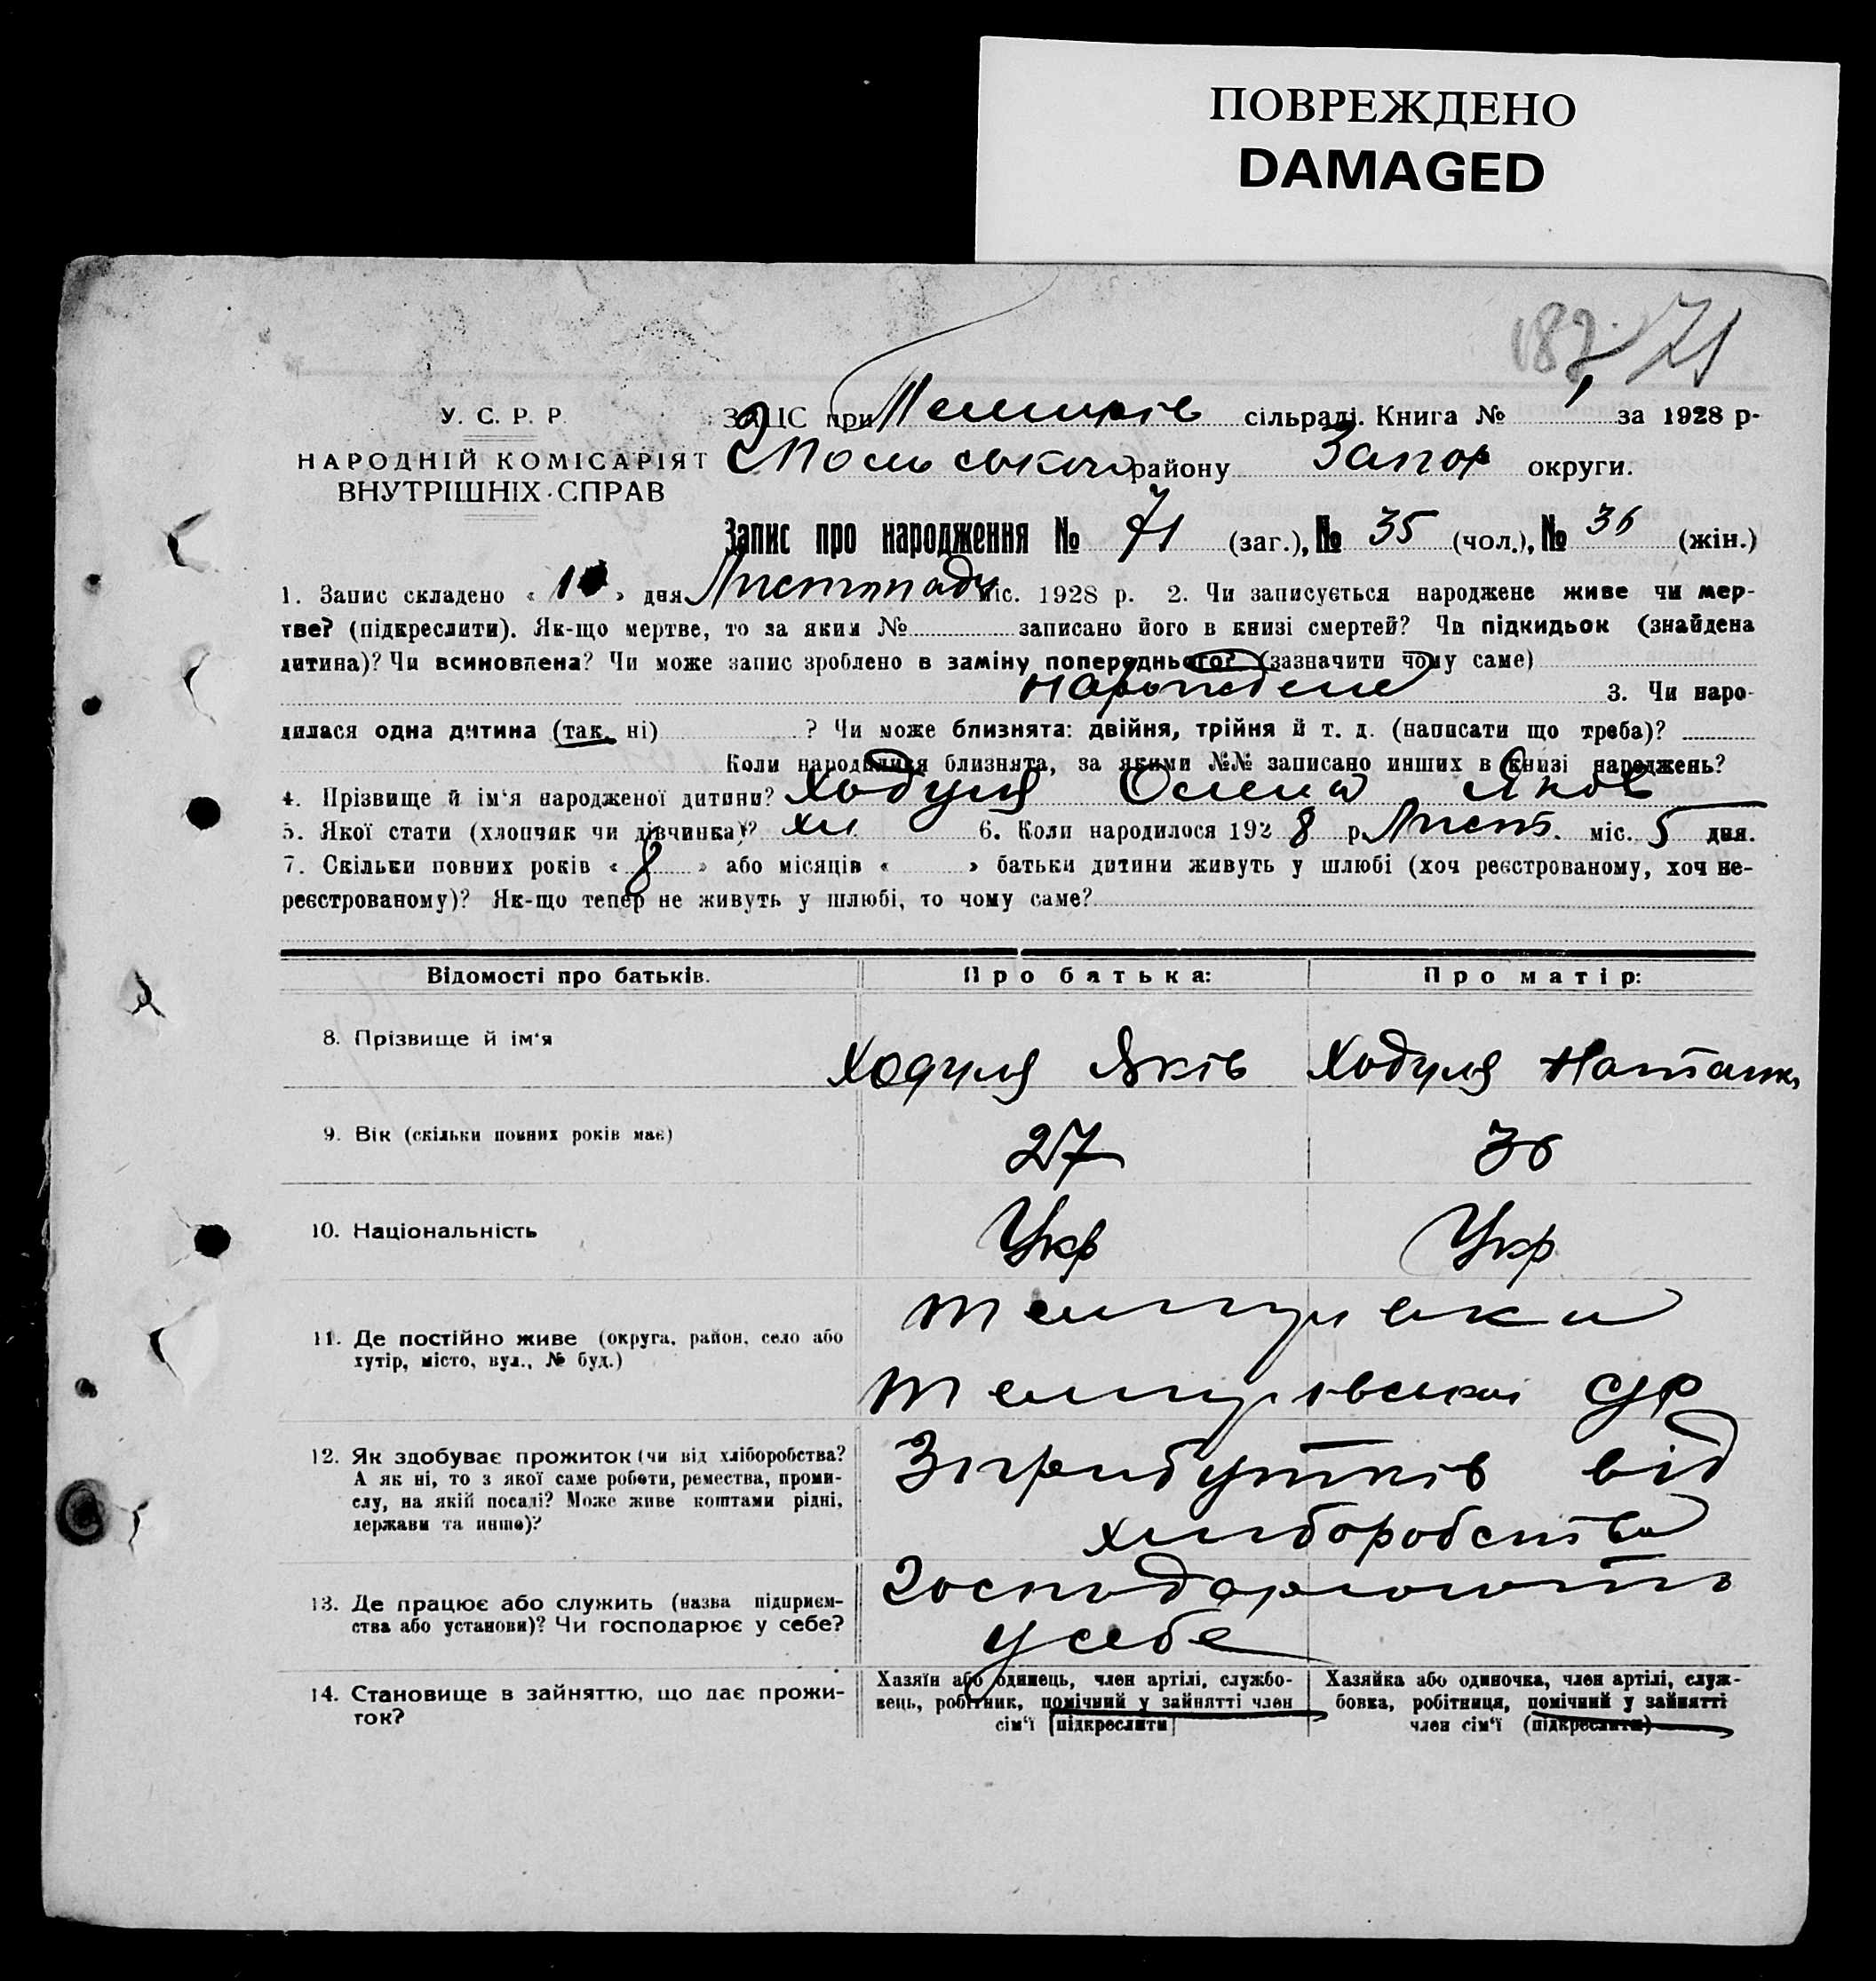 ПОВРЕЖДЕНО
DAMAGED
182 71
У. С. Р. Р.
НАРОДНІЙ КОМІСАРІЯТ
ВНУТРІШНІХ СПРАВ
ЗАЦС при сільраді. Книга № 1 за 1928 р.
району Запор округи.
Запис про народження № 71 (заг.), № 35 (чол.), № 36 (жін.)
1. Запис складено « » дня Листопаду міс. 1928 р. 2. Чи записується народжене живе чи мер-
тве? (підкреслити). Як-що мертве, то за яким № записано його в книзі смертей? Чи підкидьок (знайдена
дитина)? Чи всиновлена? Чи може запис зроблено в заміну попереднього? (зазначити чому саме)
3. Чи наро-
дилася одна дитина (так, ні) ? Чи може близнята: двійня, трійня й т. д. (написати що треба)?
Коли народилися близнята, за якими №№ записано инших в книзі народжень?
4. Прізвище й ім'я народженої дитини? Ходуля Олена Яков
5. Якої стати (хлопчик чи дівчинка)? 6. Коли народилося 1928 р. Лист. міс. 5 дня.
7. Скільки повних років « 8 » або місяців « » батьки дитини живуть у шлюбі (хоч реєстрованому, хоч не-
реєстрованому)? Як-що тепер не живуть у шлюбі, то чому саме?
Відомості про батьків. Про батька: Про матір:
8. Прізвище й ім'я Ходуля Яків Ходуля
9. Вік (скільки повних років має) 27 36
10. Національність Укр Укр
11. Де постійно живе (округа, район, село або
хутір, місто, вул., № буд.)
12. Як здобуває прожиток (чи від хліборобства? Зприбутків від
А як ні, то з якої саме роботи, ремества, проми-
слу, на якій посаді? Може живе коштами рідні, хліборобства
держави та инше)?
13. Де працює або служить (назва підприєм- Господарюють
ства або установи)? Чи господарює у себе? у себе
14. Становище в зайняттю, що дає прожи-
ток?
Хазяїн або одинець, член артілі, службо-
вець, робітник, помічний у зайнятті член
сім'ї (підкреслити)
Хазяйка або одиночка, член артілі, служ-
бовка, робітниця, помічний у зайнятті
член сім'ї (підкреслити)